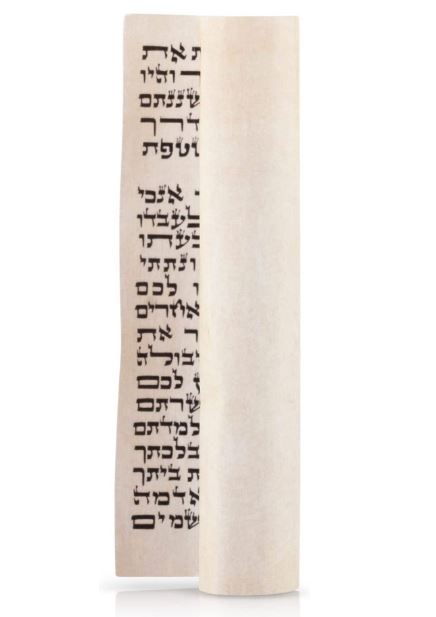 את
והיו
שננתם
דרך
טפת
אנכי
לעבדו
בעתו
ונתתי
לכם
אחרים
את
בולה
לכם
שרתם
למדתם
בלכתך
ביתך
אדמה
שמים